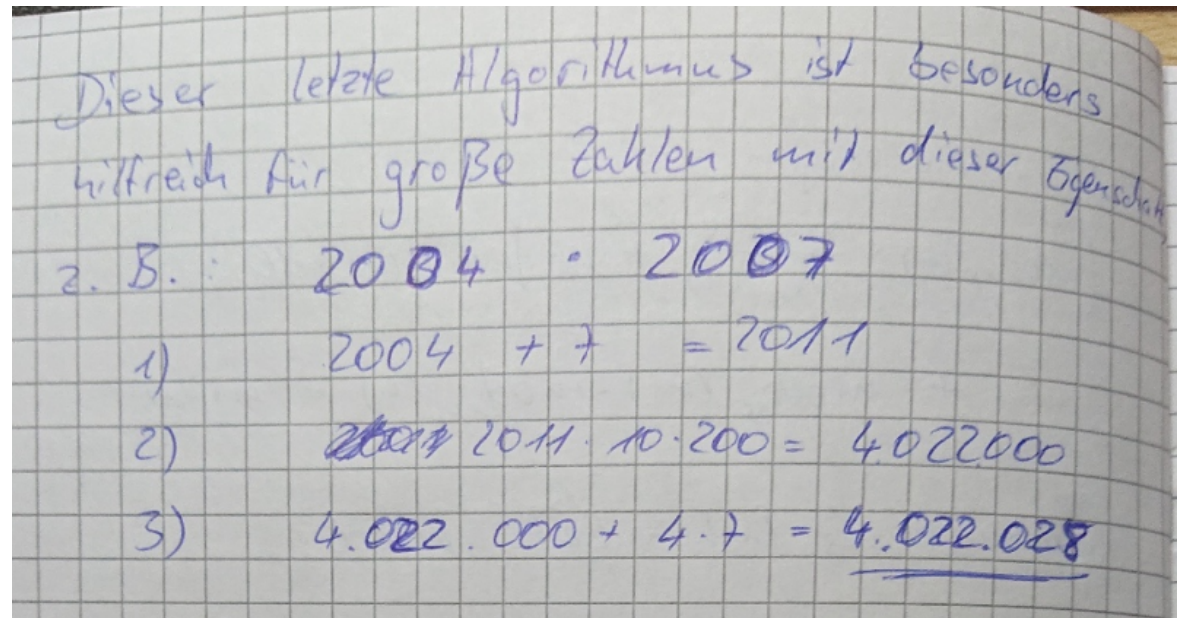 Dieser letzte Algorithmus ist besonders
hilfreich für große Zahlen mit dieser Egenschaft
z. B. : 2004 · 2007
1) 2004 + 7 = 2011
2) 2011 · 10 · 200 = 4.022000
3) 4.022.000 + 4 · 7 = 4.022.028